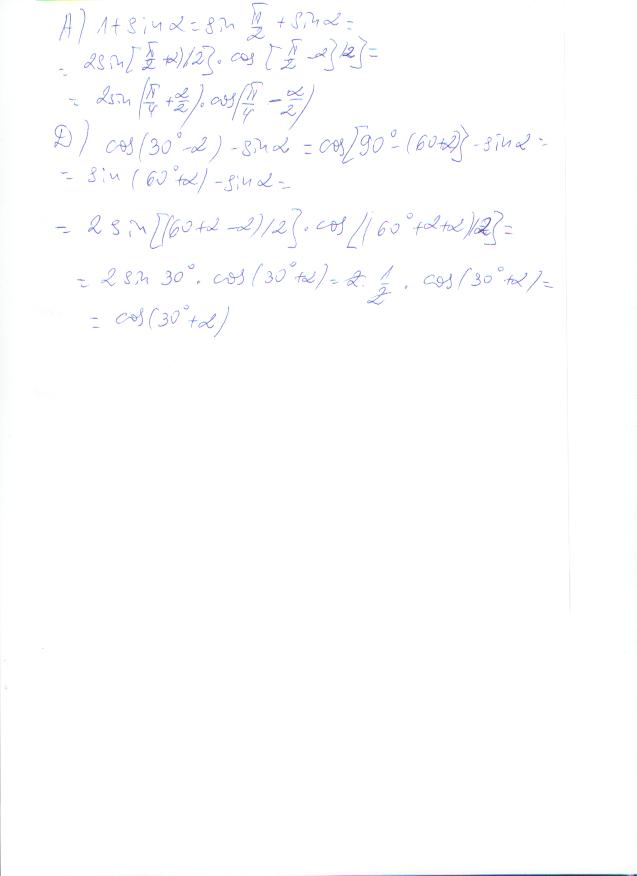 А) 1+sin α = sin π/2 + sin α =
= 2sin[π/2+α)/2]·cos[π/2-α]/2]=
= 2sin(π/4+α/2)·cos(π/4-α/2)
D) cos(30°-α)-sin α = cos[90°-(60+α)]-sin α=
= sin(60°+α)-sin α=
= 2sin[(60+α-α)/2]·cos[(60°+α+α)/2]=
= 2sin 30°·cos(30°+α)=2·1/2·cos(30°+α)=
= cos(30°+α)